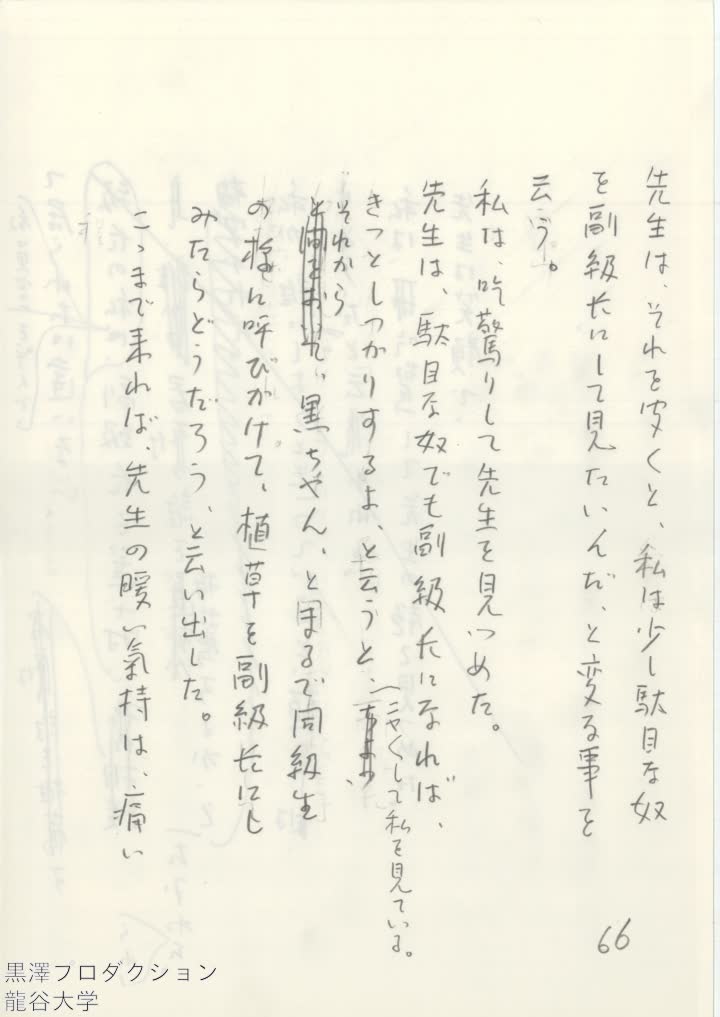 先生は、それを聞くと、私は少し駄目な奴
を副級長にして見たいんだ、と変る事を
云う。
私は、吃驚りして先生を見つめた。
先生は、駄目な奴でも副級長になれば、
きっとしっかりするよ、と云うと、
にやくして私を見ている。
それから
黒ちゃん、とまるで同級生
の様に呼びかけて、植草を副級長にし
みたらどうだろう、と云い出した。
こゝまで来れば、先生の暖い氣持は、痛い
66
黒澤プロダクション
龍谷大学